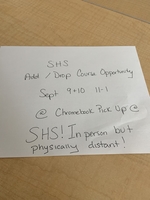 SHS
Add / Drop Course Opportunity
Sept 9+10 11-1
@ Chromebook Pick Up @
SHS! In person but
physically distant!